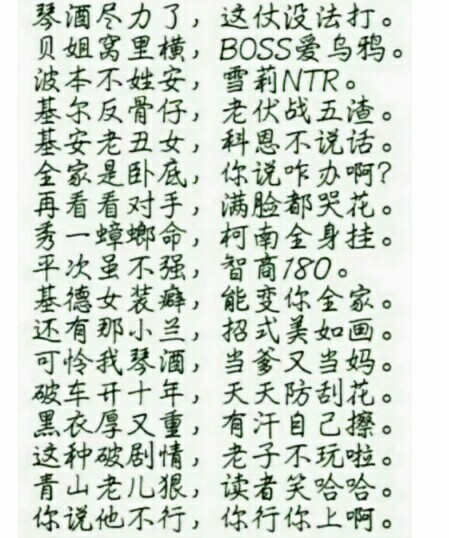 琴酒尽力了，这仗没法打。
贝姐窝里横，BOSS爱乌鸦。
波本不姓安，雪莉NTR。
基尔反骨仔，老伏战五渣。
基安老丑女，科恩不说话。
全家是卧底，你说咋办啊？
再看看对手，满脸都哭花。
秀一蟑螂命，柯南全身挂。
平次虽不强，智商180。
基德女装癖，能变你全家。
还有那小兰，招式美如画。
可怜我琴酒，当爹又当妈。
破车开十年，天天防刮花。
黑衣厚又重，有汗自己擦。
这种破剧情，老子不玩啦。
青山老儿狠，读者笑哈哈。
你说他不行，你行你上啊。